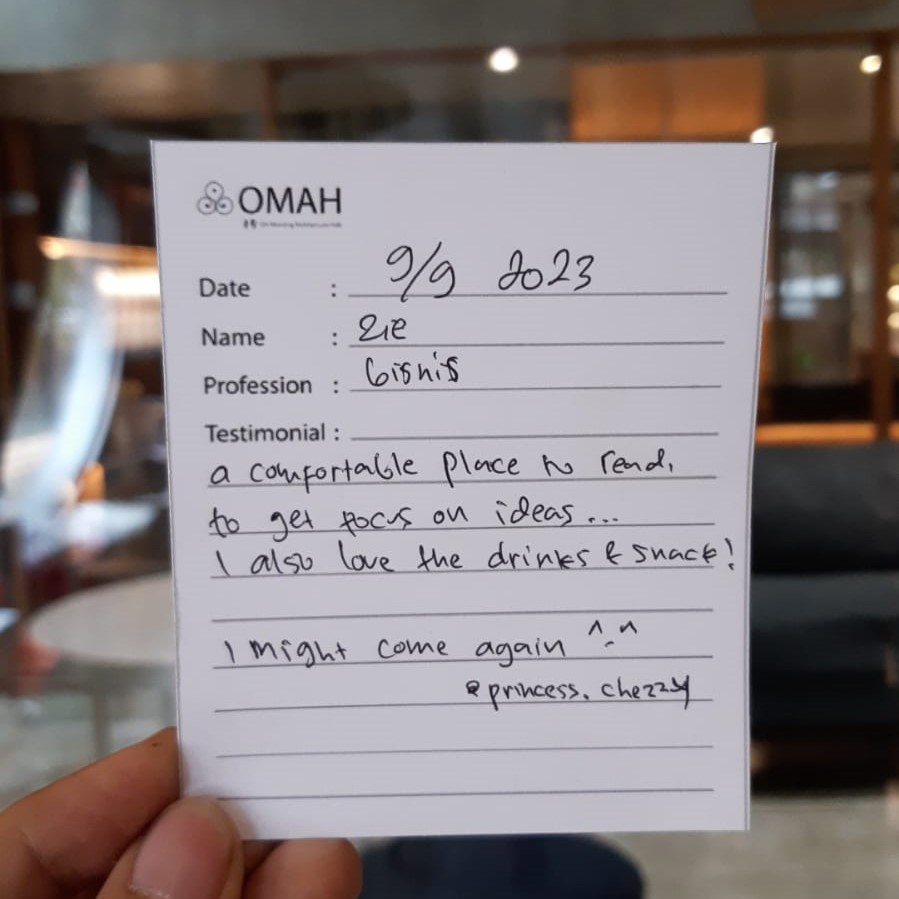 OMAH
Date : 9/9 2023
Name :
Profession : bisnis
Testimonial :
a comfortable place to read,
to get focus on ideas...
I also love the drinks & snack!
I might come again ^-^
@princess.chezzy